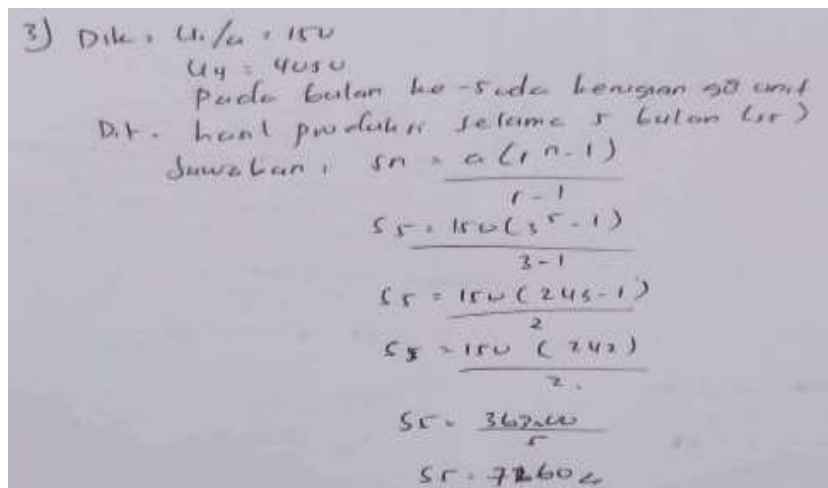 3) Dik : U1/a = 150
U4 = 4050
Pada bulan ke-5 ada kenaikan unit
Dit. hasil produksi selama 5 bulan (S5)
Jawaban : Sn = a(r n - 1)
r - 1
S5 = 150(3^5 - 1)
3 - 1
S5 = 150(243 - 1)
2
S5 = 150 (242)
2
S5 =
5
S5 =